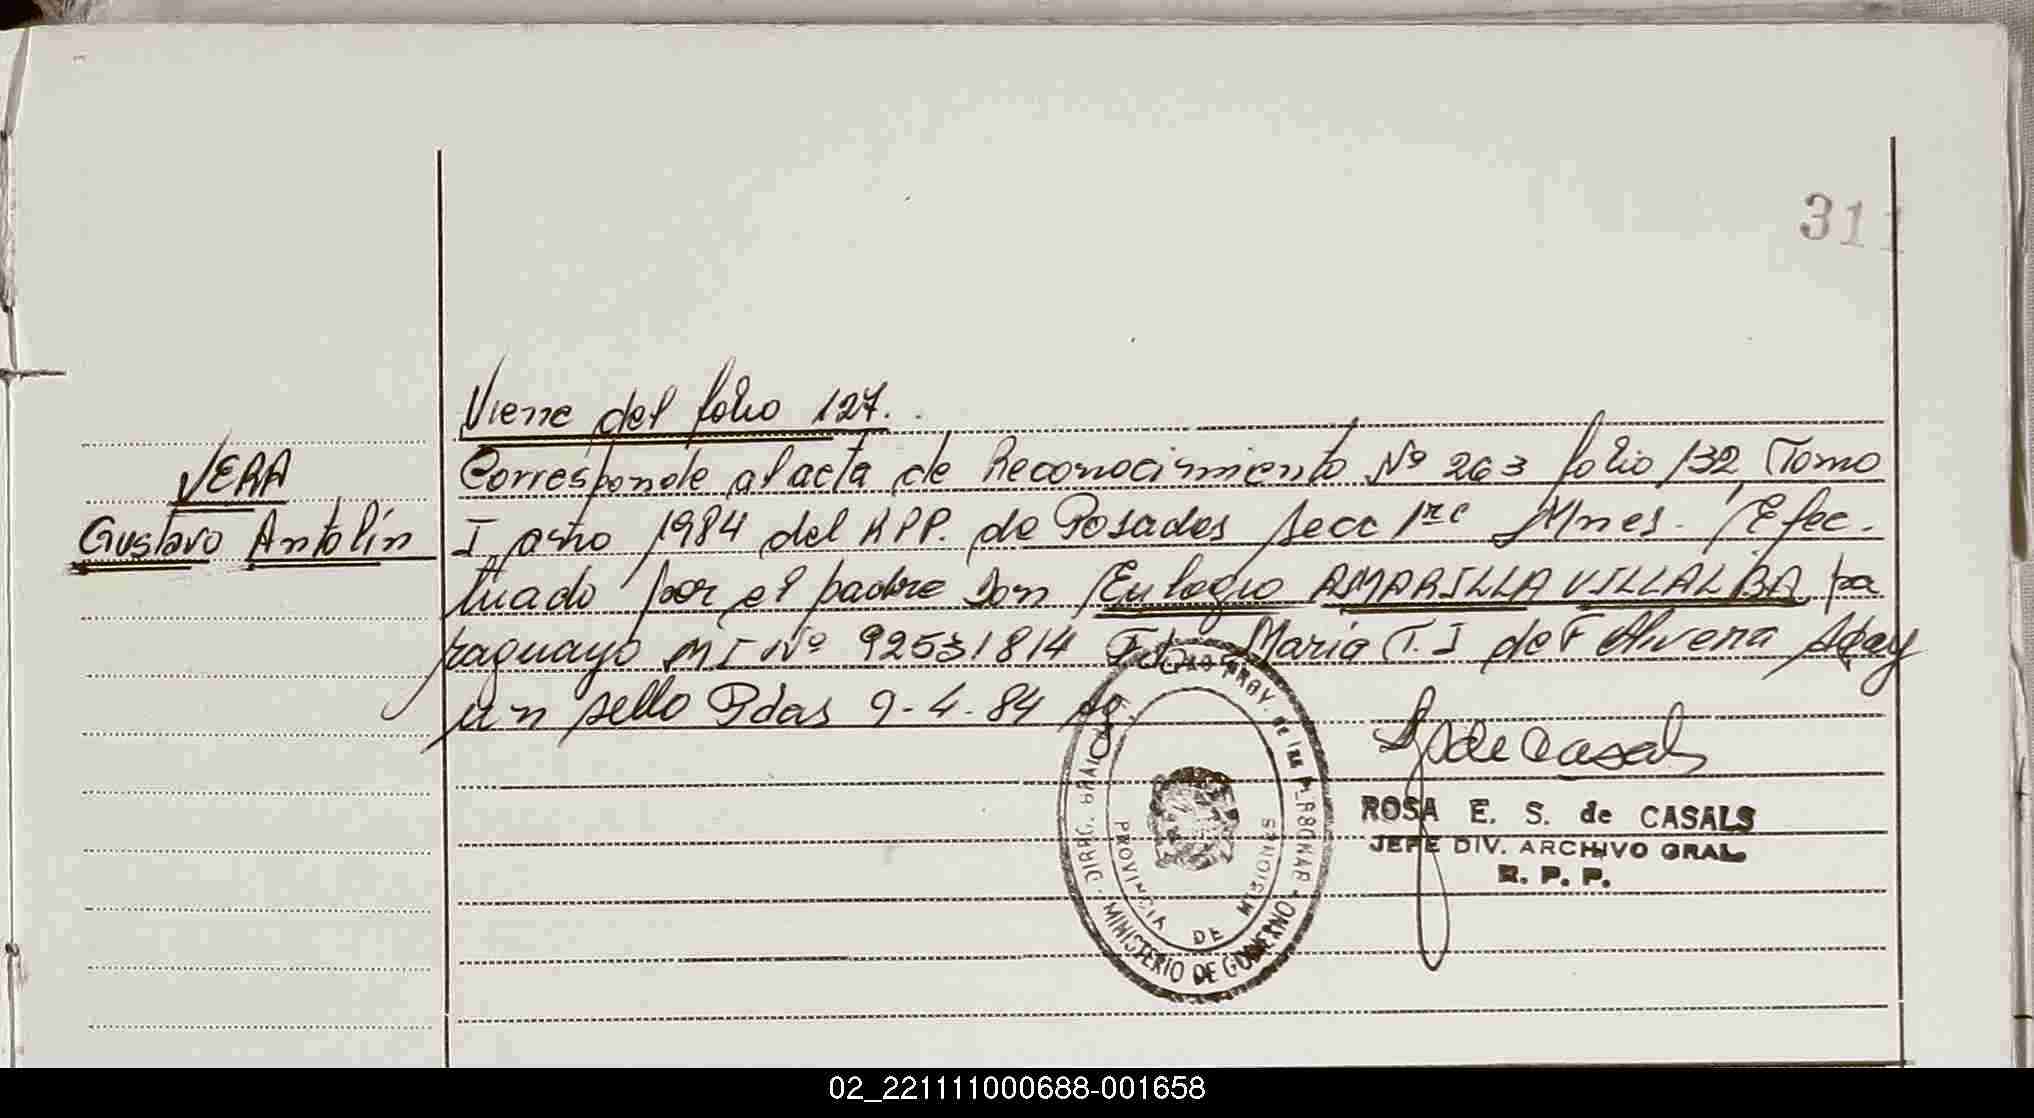 311
Viene del folio 127.
VERA
Gustavo Antolín
Corresponde al acta de Reconocimiento Nº 263 folio 132 Tomo
I año 1984 del RPP. de Posadas secc 1ra Mnes. Efec-
tuado por el padre Don Eulogio AMARILLA VILLALBA pa
raguayo MI Nº 92531814 Fdo María T. I de F Alvena Hay
un sello Pdas 9-4-84
DIREC. GRAL. PROV. de las PERSONAS
MINISTERIO DE GOBIERNO
PROVINCIA DE MISIONES
de Casals
ROSA E. S. de CASALS
JEFE DIV. ARCHIVO GRAL
R. P. P.
02_221111000688-001658